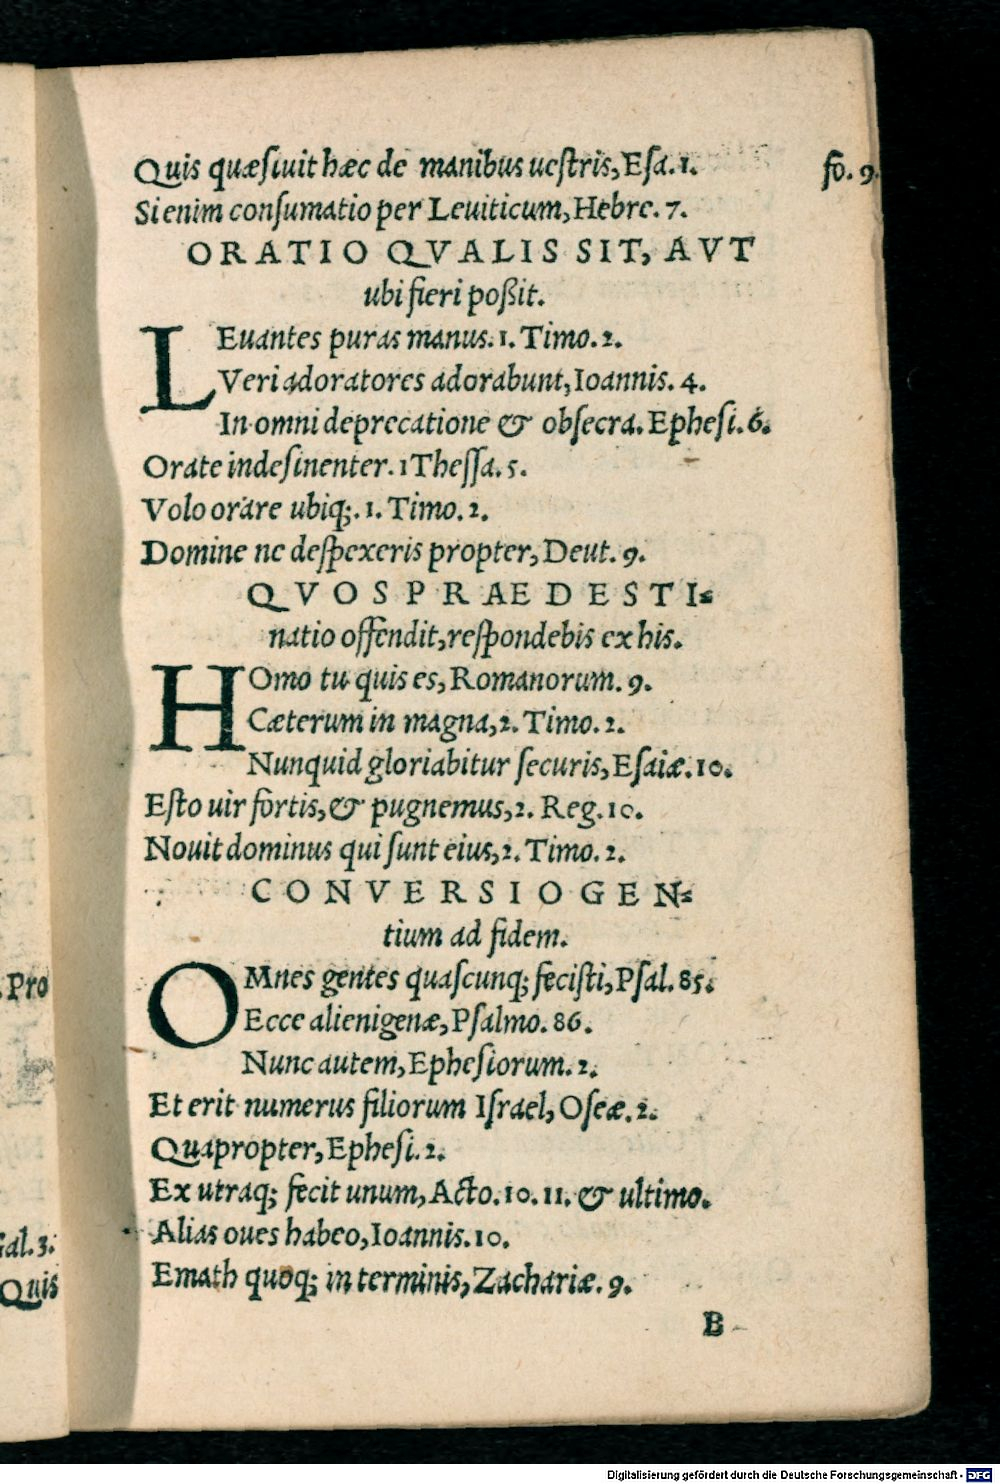 Quis quæſiuit hæc de manibus ueſtris, Eſa. 1.
fo. 9.
Si enim conſumatio per Leuiticum, Hebre. 7.
ORATIO QVALIS SIT, AVT
ubi fieri poßit.
LEuantes puras manus. 1. Timo. 2.
Veri adoratores adorabunt, Ioannis. 4.
In omni deprecatione & obſecra. Epheſi. 6.
Orate indeſinenter. 1 Theſſa. 5.
Volo orare ubiq;. 1. Timo. 2.
Domine ne deſpexeris propter, Deut. 9.
QVOS PRAEDESTI-
natio offendit, reſpondebis ex his.
HOmo tu quis es, Romanorum. 9.
Cæterum in magna, 2. Timo. 2.
Nunquid gloriabitur ſecuris, Eſaiæ. 10.
Eſto uir fortis, & pugnemus, 2. Reg. 10.
Nouit dominus qui ſunt eius, 2. Timo. 2.
CONVERSIO GEN-
tium ad fidem.
OMnes gentes quaſcunq; feciſti, Pſal. 85.
Ecce alienigenæ, Pſalmo. 86.
Nunc autem, Epheſiorum. 2.
Et erit numerus filiorum Iſrael, Oſeæ. 2.
Quapropter, Epheſi. 2.
Ex utraq; fecit unum, Acto. 10. 11. & ultimo.
Alias oues habeo, Ioannis. 10.
Emath quoq; in terminis, Zachariæ. 9.
B
Pro
Gal. 3.
Quis
Digitalisierung gefördert durch die Deutsche Forschungsgemeinschaft - DFG